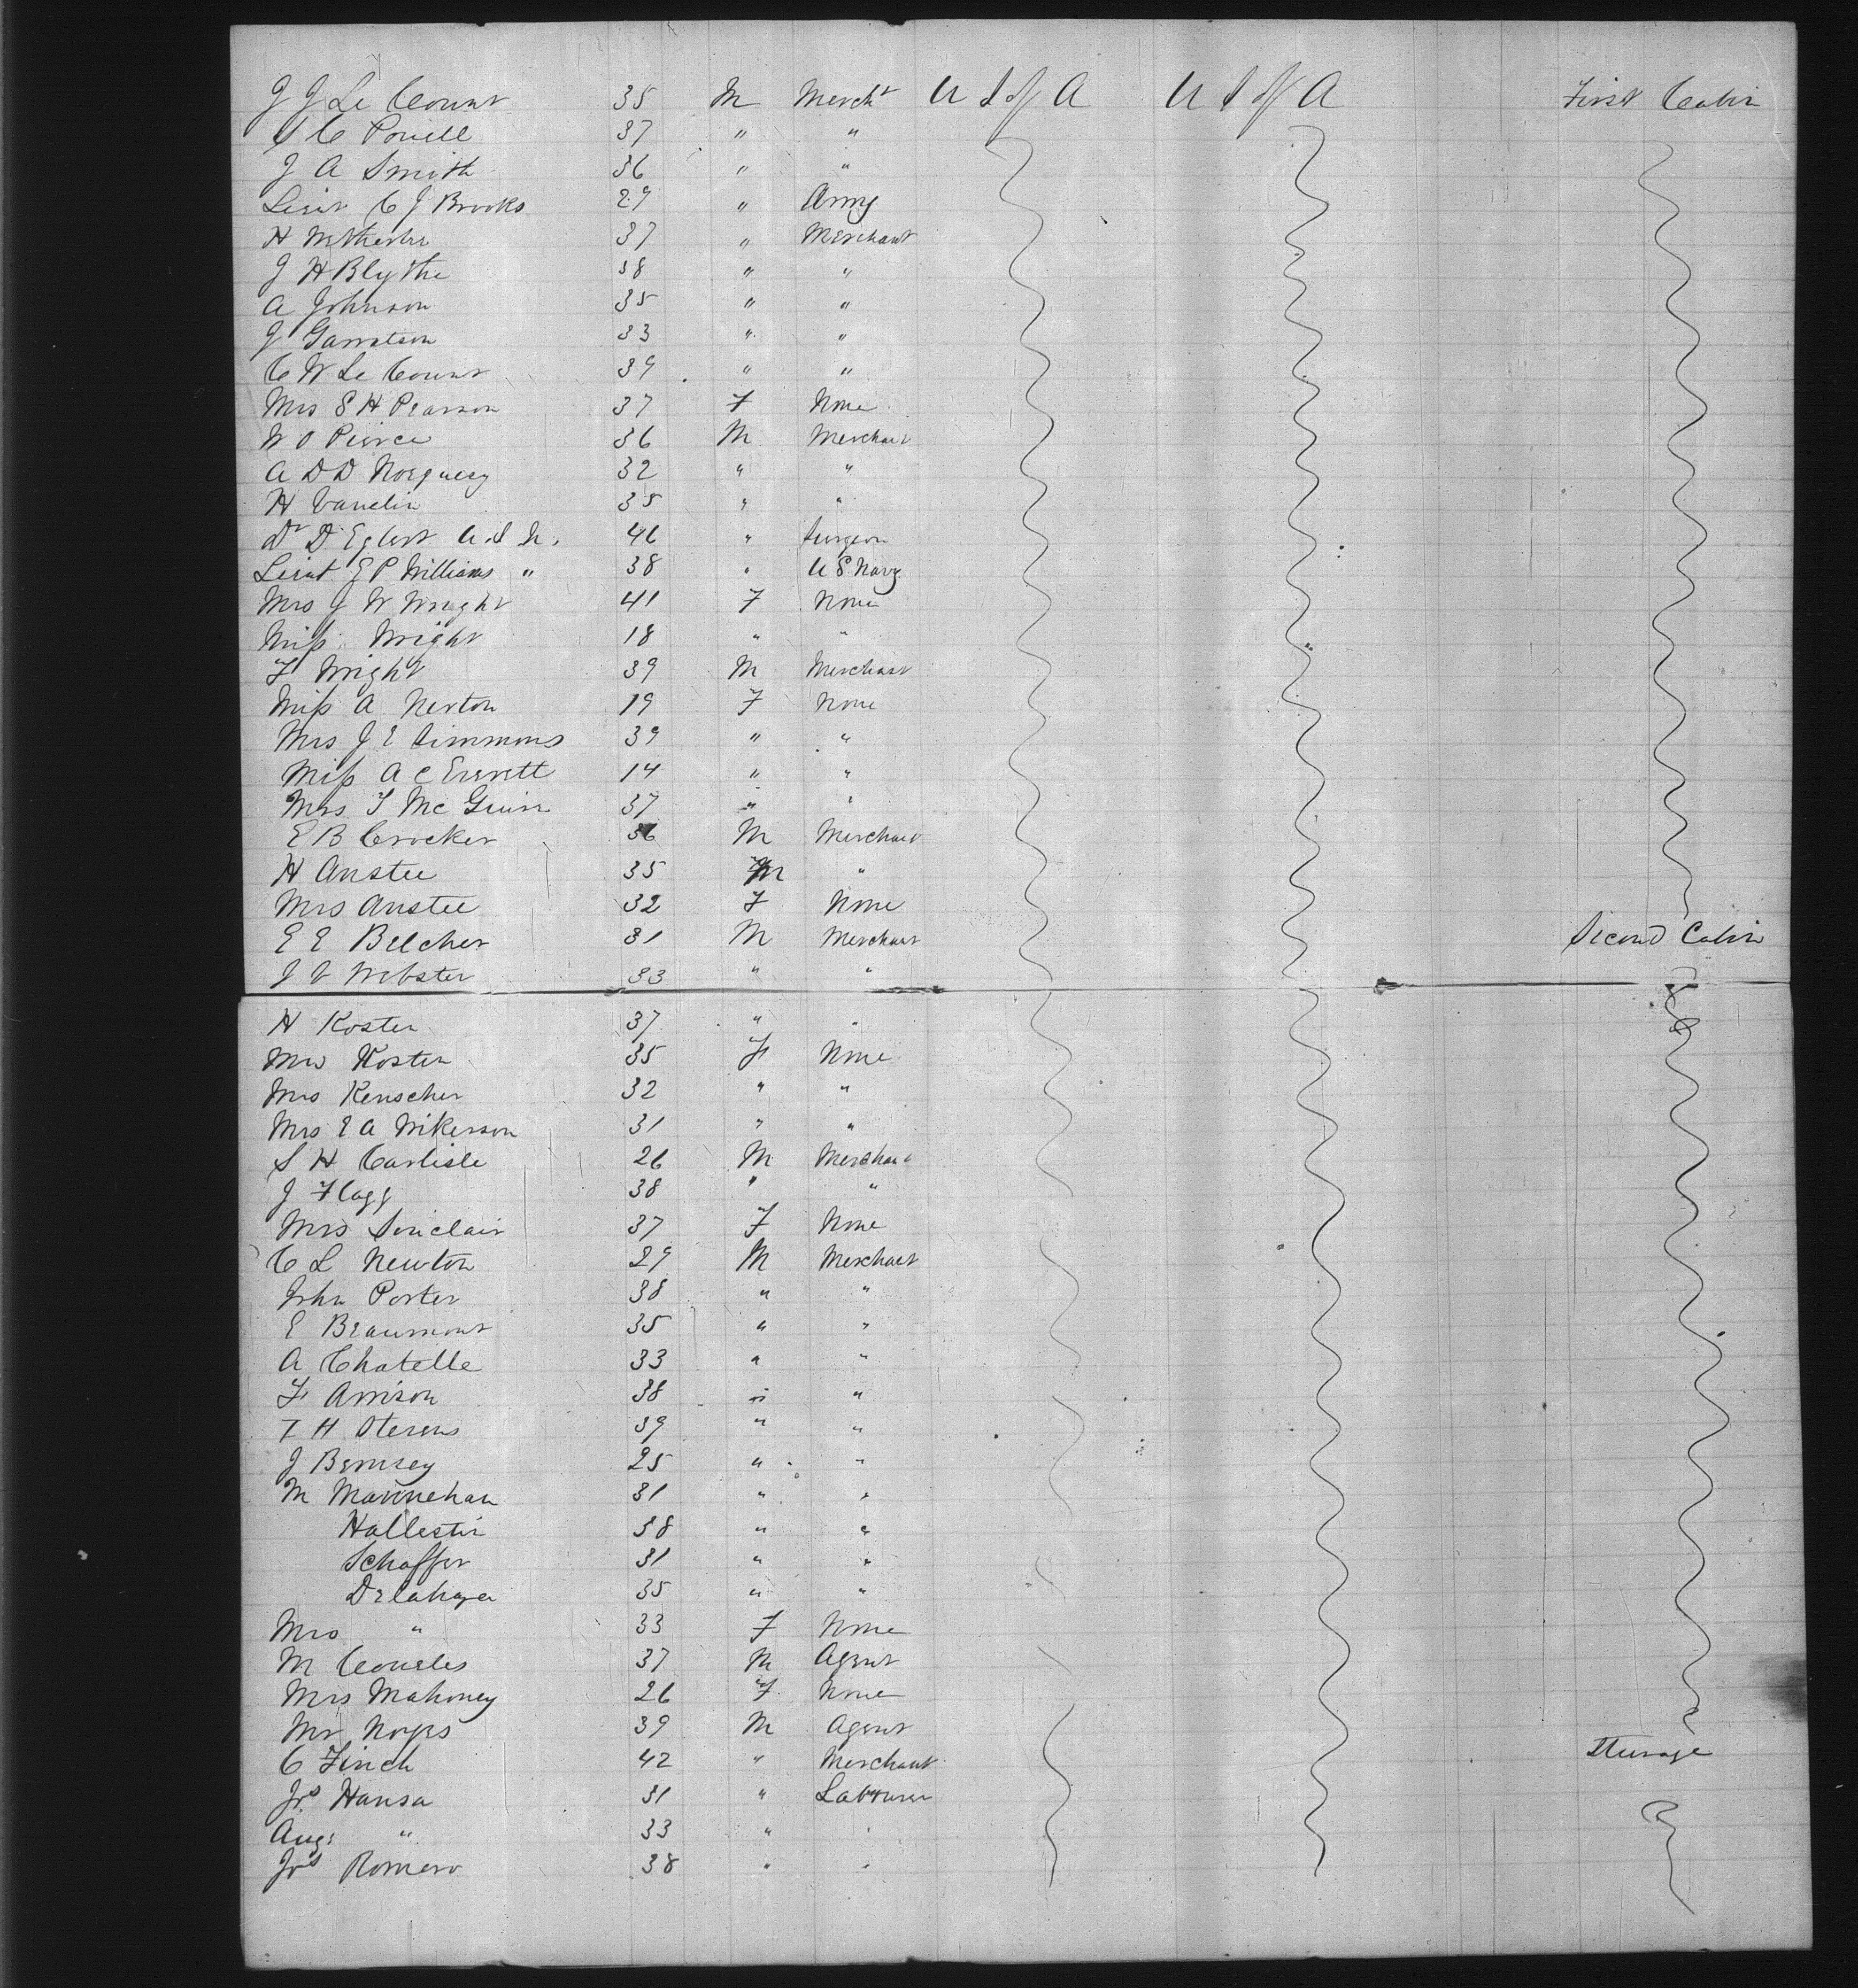 J J Le Count 35 M Mercht U S of A U S of A First Cabin
S C Powell 37 " "
J A Smith 36 " "
Lieut C J Brooks 29 " Army
H 37 " Merchant
J H Blythe 38 " "
A Johnson 35 " "
J Garratson 33 " "
C W Le Count 39 " "
Mrs S H Pearson 37 F None
W O Pierce 36 M Merchant
A D D 32 " "
H 35 " "
Dr D Egbert U.S.N. 46 " Surgeon
Lieut E P Williams " 38 " U S Navy
Mrs J W Wright 41 F None
Miss Wright 18 " "
F Wright 39 M Merchant
Miss A Nexton 19 F None
Mrs J E Simmons 39 " "
Miss A C Everett 14 " "
Mrs T Mc Guire 37 " "
E B Crocker 36 M Merchant
H Anstee 35 M "
Mrs Anstee 32 F None
E E Belcher 31 M Merchant Second Cabin
J V Webster 33 " "
H Koster 37 " "
Mrs Koster 35 F None
Mrs Kenscher 32 " "
Mrs E A Wikerson 31 " "
S H Carlisle 26 M Merchant
J Flagg 38 " "
Mrs Sinclair 37 F None
C L Newton 29 M Merchant
John Porter 38 " "
E Beaumont 35 " "
A Chatelle 33 " "
F Arrison 38 " "
F H Stevens 39 " "
J Bemsey 25 " "
M Mannehan 31 " "
Hallestin 38 " "
Schaffer 31 " "
Delahaya 35 " "
Mrs " 33 F None
M 37 M Agent
Mrs Mahoney 26 F None
Mr Noyes 39 M Agent
C Finch 42 " Merchant Steerage
Jos Hansa 31 " Labourer
Aug: " 33 " "
Jos Romero 38 " "